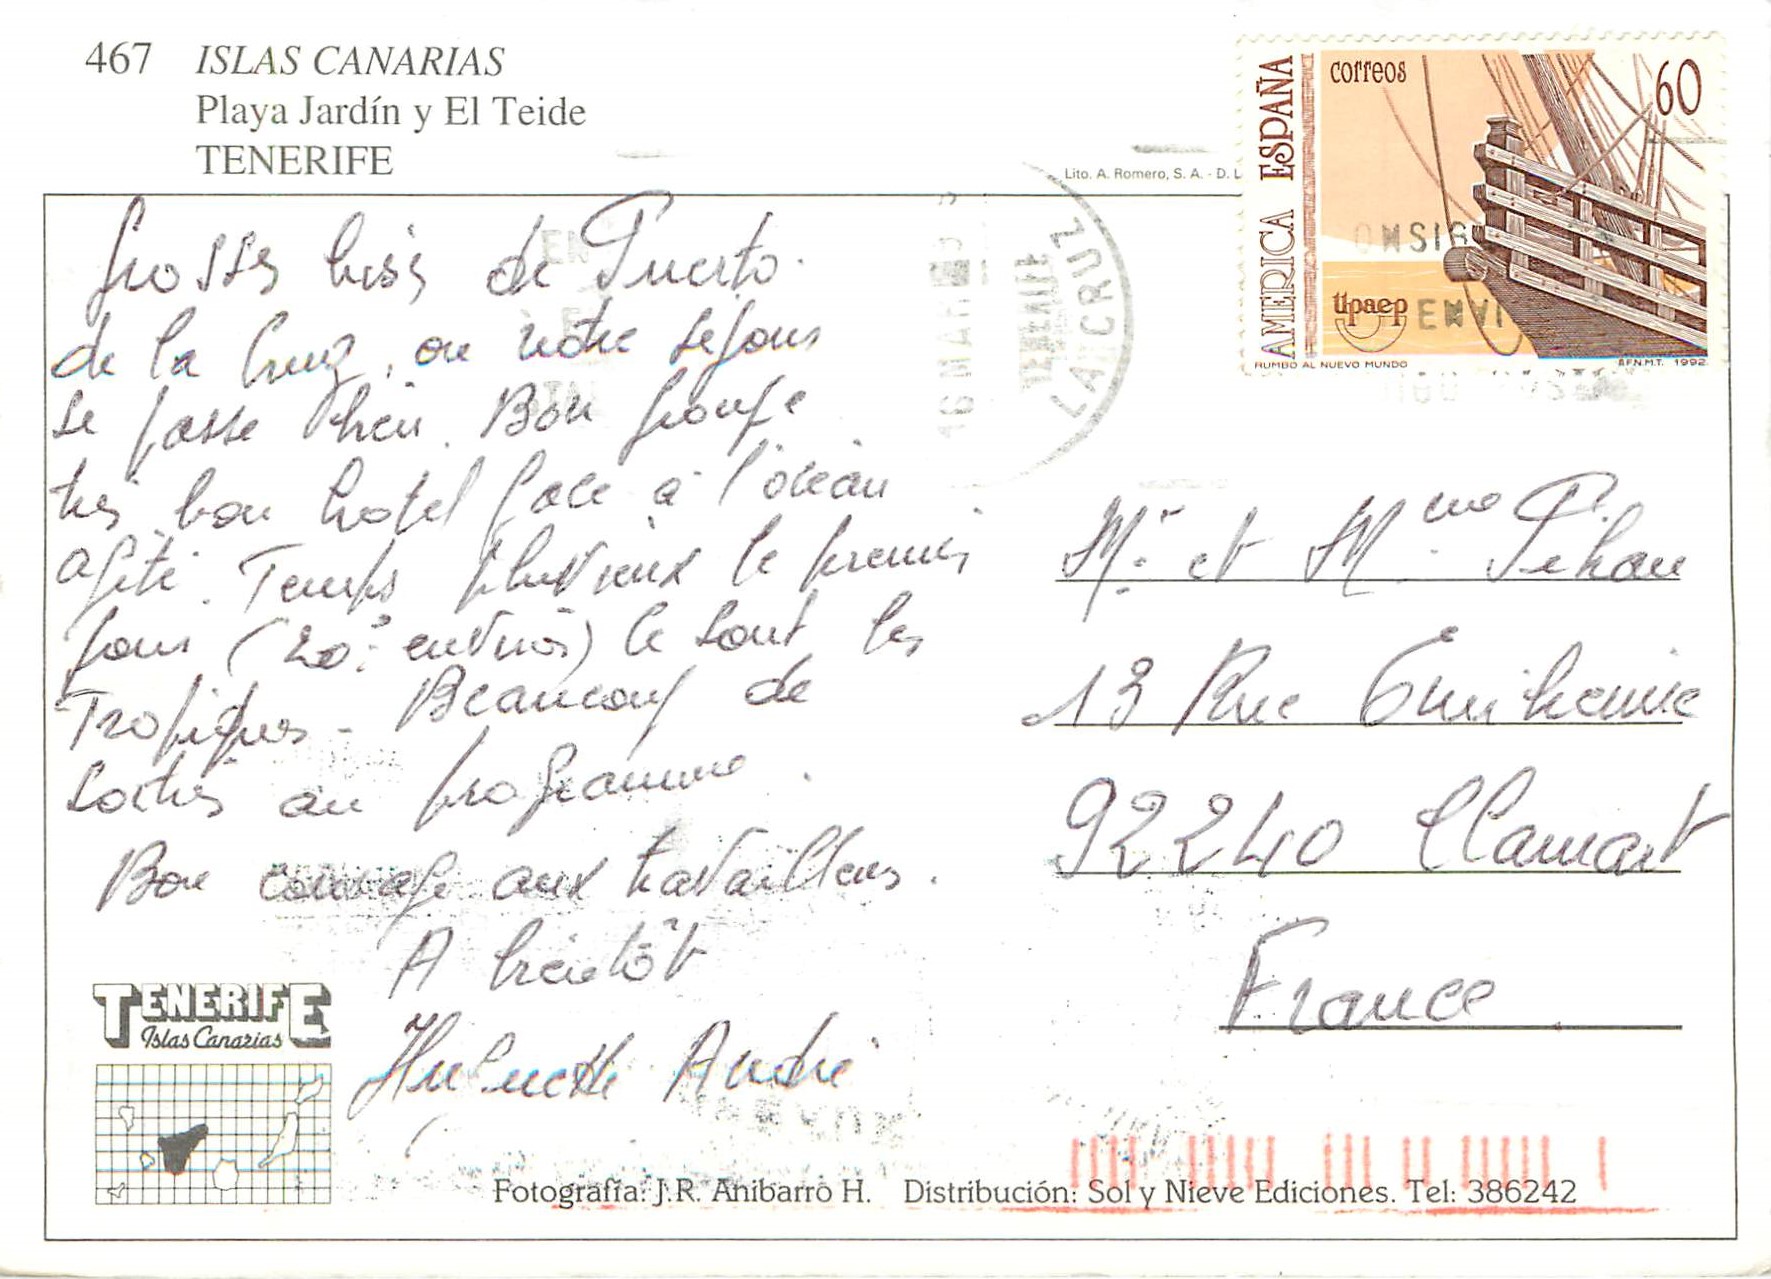 467 ISLAS CANARIAS
Playa Jardín y El Teide
TENERIFE
Lito. A. Romero, S. A. - D. L
AMERICA ESPAÑA
correos
60
upaep
RUMBO AL NUEVO MUNDO
F.N.M.T. 1992
16 MAR
TENERIFE
LA CRUZ
ONSIG
ENVI
Grosses bises de Puerto
de la Cruz, ou notre séjour
se passe bien. Bon groupe
très bon hotel face à l'océan
agité. Temps pluvieux le premier
jour (20° environ) ce sont les
Tropiques - Beaucoup de
sorties au programme.
Bon courage aux travailleurs.
A bientôt
André
Mr et Mme Pehau
13 Rue
92240 Clamart
France
TENERIFE
Islas Canarias
Fotografía: J.R. Anibarro H. Distribución: Sol y Nieve Ediciones. Tel: 386242